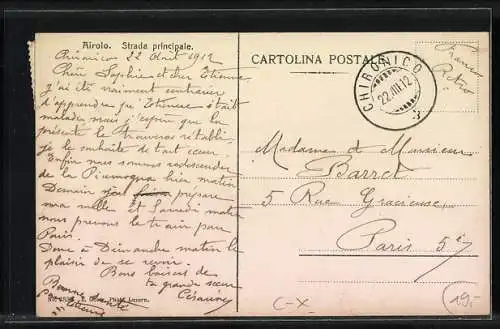 Airolo. Strada principale.
Chironico 22 Août 1912
Chère Sophie et cher Etienne,
j'ai été vraiment contrariée
d'apprendre qu'Etienne était
malade, mais j'espère que la
présente le trouvera rétabli,
je le souhaite de tout cœur.
Enfin nous sommes redescendus
de la Piumogna hier matin
Demain je prépare
ma malle et Samedi matin
nous prenons le train pour
Paris.
Donc à Dimanche matin le
plaisir de se revoir.
Bons baisers de
ta grande sœur
Césarine
Bonne santé
Etienne
CARTOLINA POSTALE.
CHIRONICO
22.VIII.12
Franco
Retro
Mesdames et Monsieur
Barret
5 Rue Gracieuse
Paris 5e
C-X
19.-